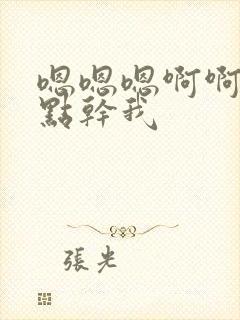 嗯嗯嗯啊啊
點幹我
張光